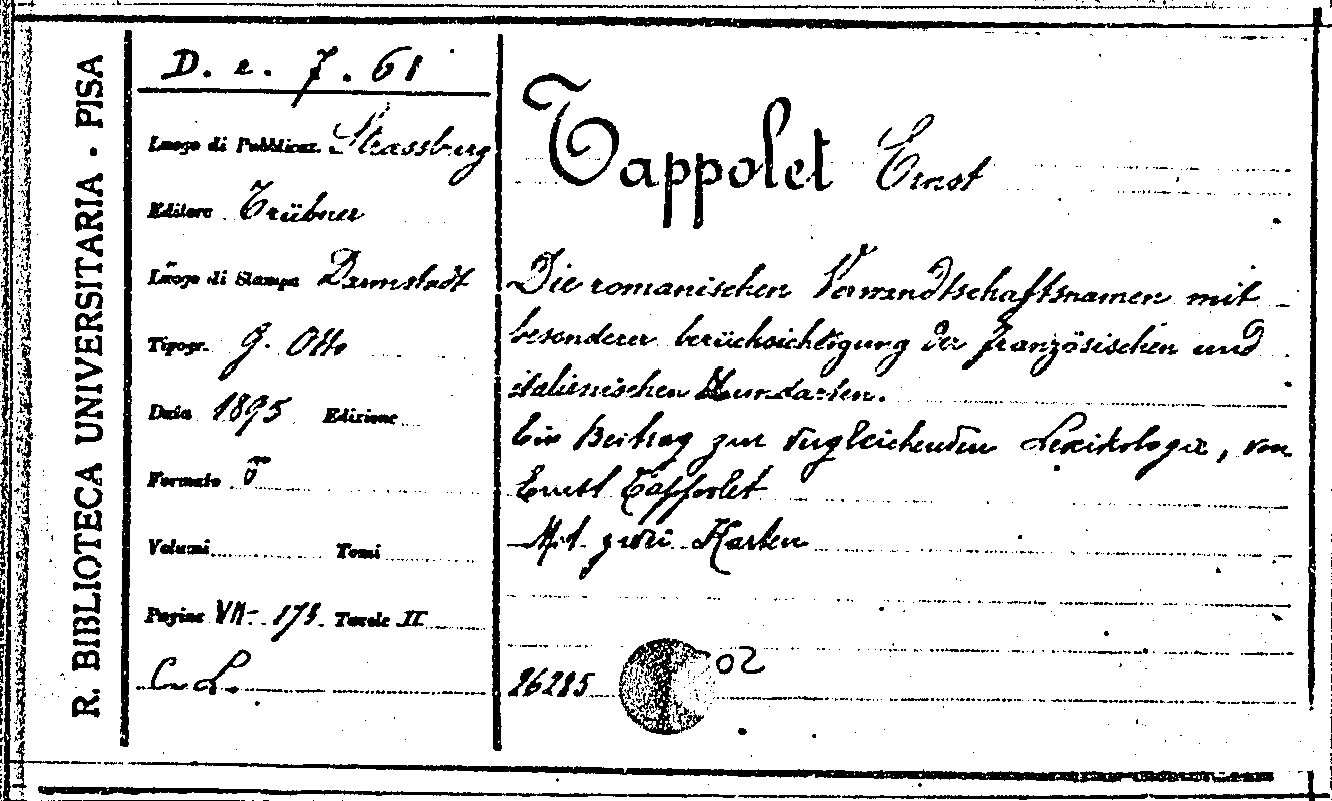 R. BIBLIOTECA UNIVERSITARIA - PISA
D. e. 7. 61
Luogo di Pubblicaz. Strassburg
Editore Trübner
Luogo di Stampa Darmstadt
Tipogr. G. Otto
Data 1895 Edizione
Formato 8°
Volumi Tomi
Pagine VII- 178. Tavole II
Tappolet Ernst
Die romanischen Verwandtschaftsnamen mit
besonderer berücksichtigung der französischen und
italienischen Mundarten.
Ein Beitrag zur vergleichenden Lexikologie, von
Ernst Tappolet
Mit zwei Karten
26285
02